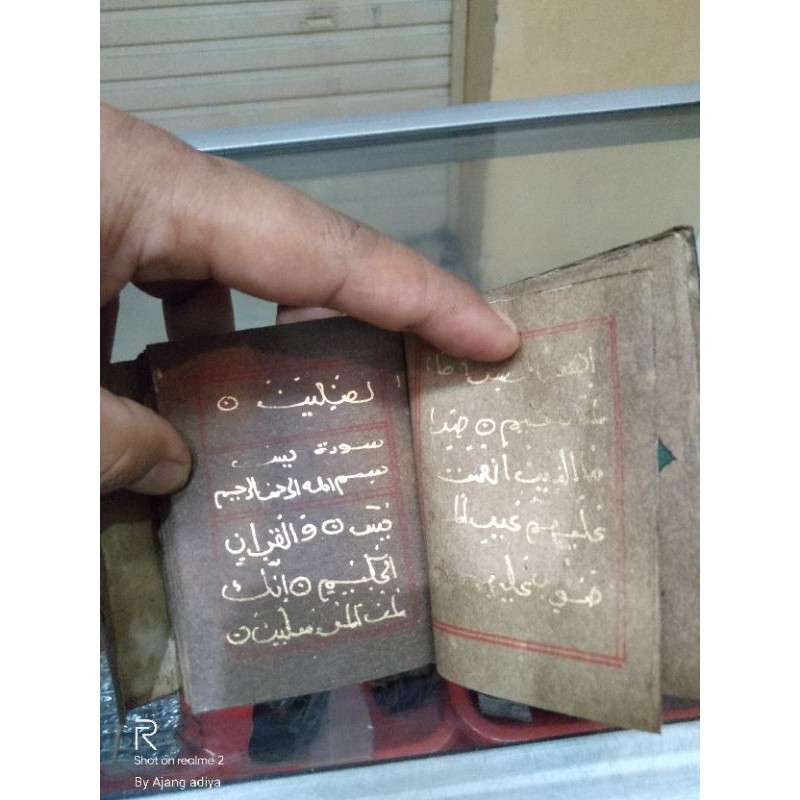 اهدنا الصر ط ا
لمستقيم ○ صرا
ط الذين انعمت
عليهم غير الم
غضوب عليهم
لضالين ○
سورة يس
بسم الله الرحمن الرحيم
يس ○ والقران
الحكيم ○ انك
لمن المرسلين ○
Shot on realme 2
By Ajang adiya